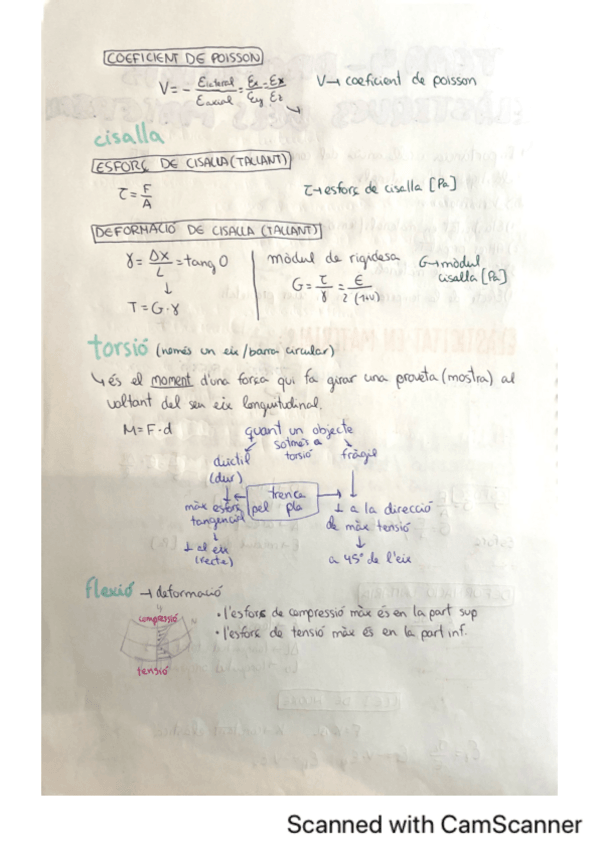 COEFICIENT DE POISSON
V = - Elateral / Eaxial = Ex / Ey = Ex / Ez
V → coeficient de poisson
cisalla
ESFORÇ DE CISALLA (TALLANT)
τ = F / A
τ → esforç de cisalla [Pa]
DEFORMACIÓ DE CISALLA (TALLANT)
γ = Δx / L = tang θ
↓
T = G · γ
mòdul de rigidesa
G = τ / γ = E / 2(1+ν)
G → mòdul
cisalla [Pa]
torsió (només un eix / barra circular)
↳ és el moment d'una força qui fa girar una proveta (mostra) al
voltant del seu eix longitudinal.
M = F · d
quant un objecte
sotmès a
torsió
dúctil
(dur)
fràgil
trenca
pel pla
màx esforç
tangencial
⊥ al eix
(recte)
⊥ a la direcció
de màx tensió
a 45° de l'eix
flexió → deformació
compressió
tensió
• l'esforç de compressió màx és en la part sup
• l'esforç de tensió màx és en la part inf.
Scanned with CamScanner